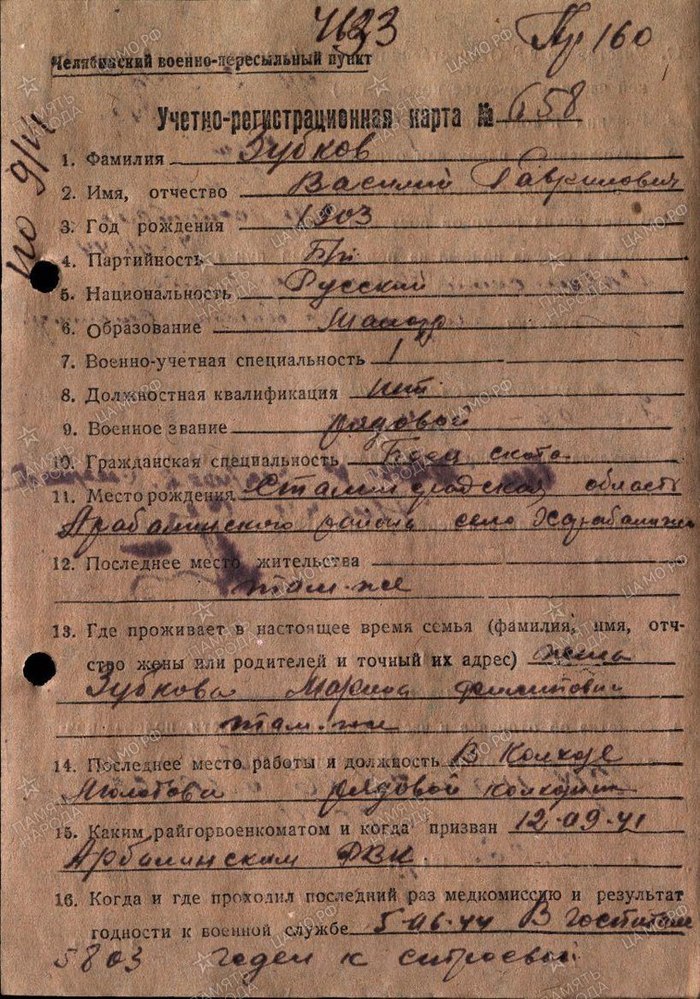 Пр 160
Челябинский военно-пересыльный пункт
Учетно-регистрационная карта № 658
по 9/VI
1. Фамилия Зубков
2. Имя, отчество Василий Гаврилович
3. Год рождения 1903
4. Партийность Б/п
5. Национальность Русский
6. Образование
7. Военно-учетная специальность 1
8. Должностная квалификация нет
9. Военное звание рядовой
10. Гражданская специальность скота
11. Место рождения Сталинградская область
района село
12. Последнее место жительства
там-же
13. Где проживает в настоящее время семья (фамилия, имя, отч-
ство жены или родителей и точный их адрес) жена
Зубкова
там-же
14. Последнее место работы и должность В Колхозе
Молотова рядовой колхозник
15. Каким райгорвоенкоматом и когда призван 12-09-41
РВК
16. Когда и где проходил последний раз медкомиссию и результат
годности к военной службе 5-06-44 В госпитале
5803 годен к строевой